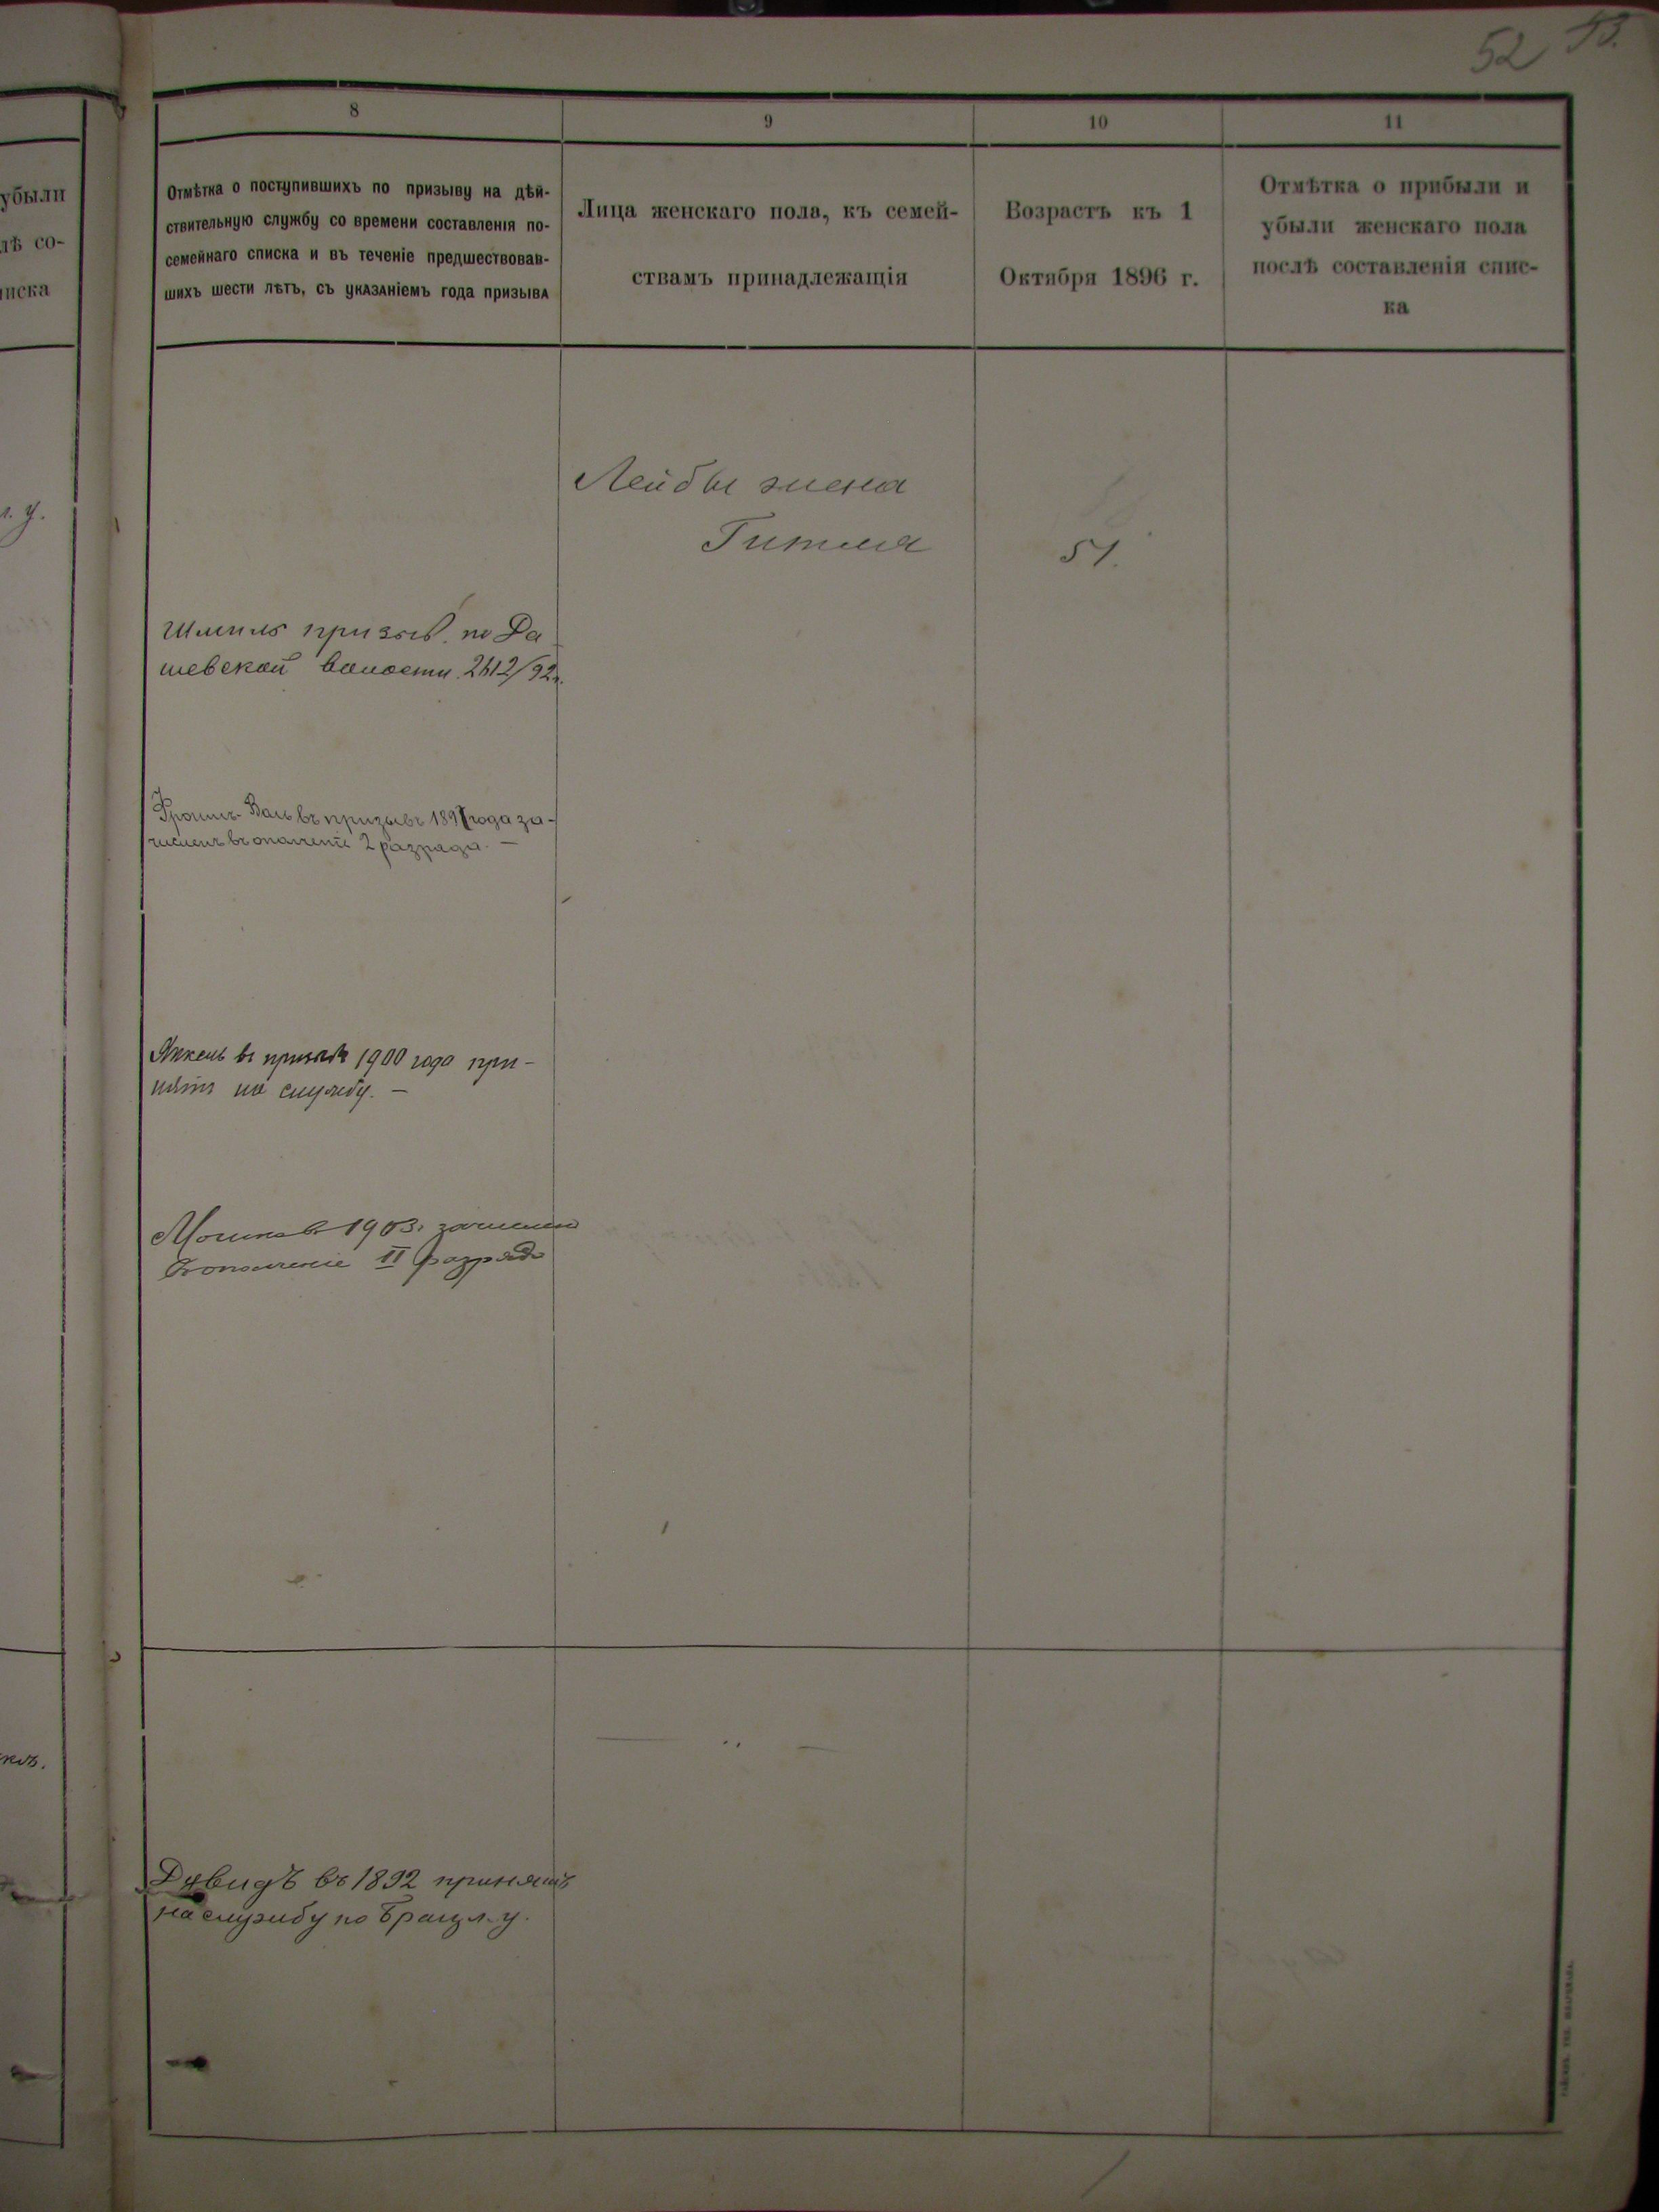 52 53.
убыли
лѣ со-
иска
л. у.
8
9
10
11
Отмѣтка о поступившихъ по призыву на дѣй-
ствительную службу со времени составленія по-
семейнаго списка и въ теченіе предшествовав-
шихъ шести лѣтъ, съ указаніемъ года призыва
Лица женскаго пола, къ семей-
ствамъ принадлежащія
Возрастъ къ 1
Октября 1896 г.
Отмѣтка о прибыли и
убыли женскаго пола
послѣ составленія спис-
ка
Лейбы жена
Гитля 51.
Шмиль призыв. по Да
шевской волости 2612/92г.
Фроимъ-Вольвъ призывъ 1897 года за-
численъ въ ополченіе 2 разряда. —
Янкель въ призывъ 1900 года при-
нятъ на службу. —
Мошко въ 1903. зачислен
в ополченіе II разряда
Давидъ въ 1892 принятъ
на службу по Брацл. у.